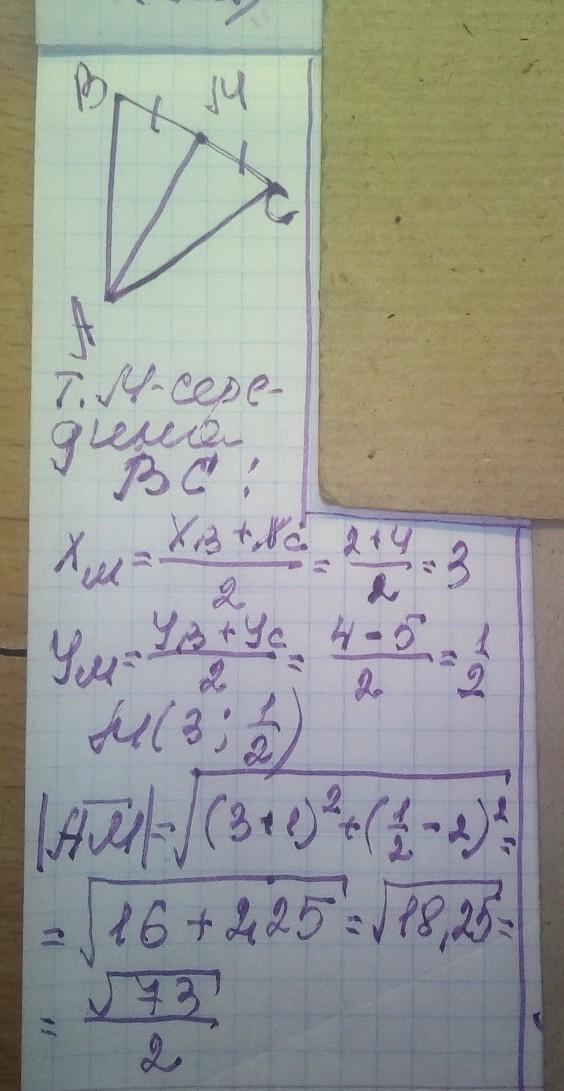 B M
C
A
т. M-сере-
дина
BC:
x_M = (x_B + x_C)/2 = (2+4)/2 = 3
y_M = (y_B + y_C)/2 = (4-5)/2 = 1/2
M(3; 1/2)
|AM| = √((3+1)² + (1/2 - 2)²) =
= √(16 + 2,25) = √(18,25) =
= √73/2